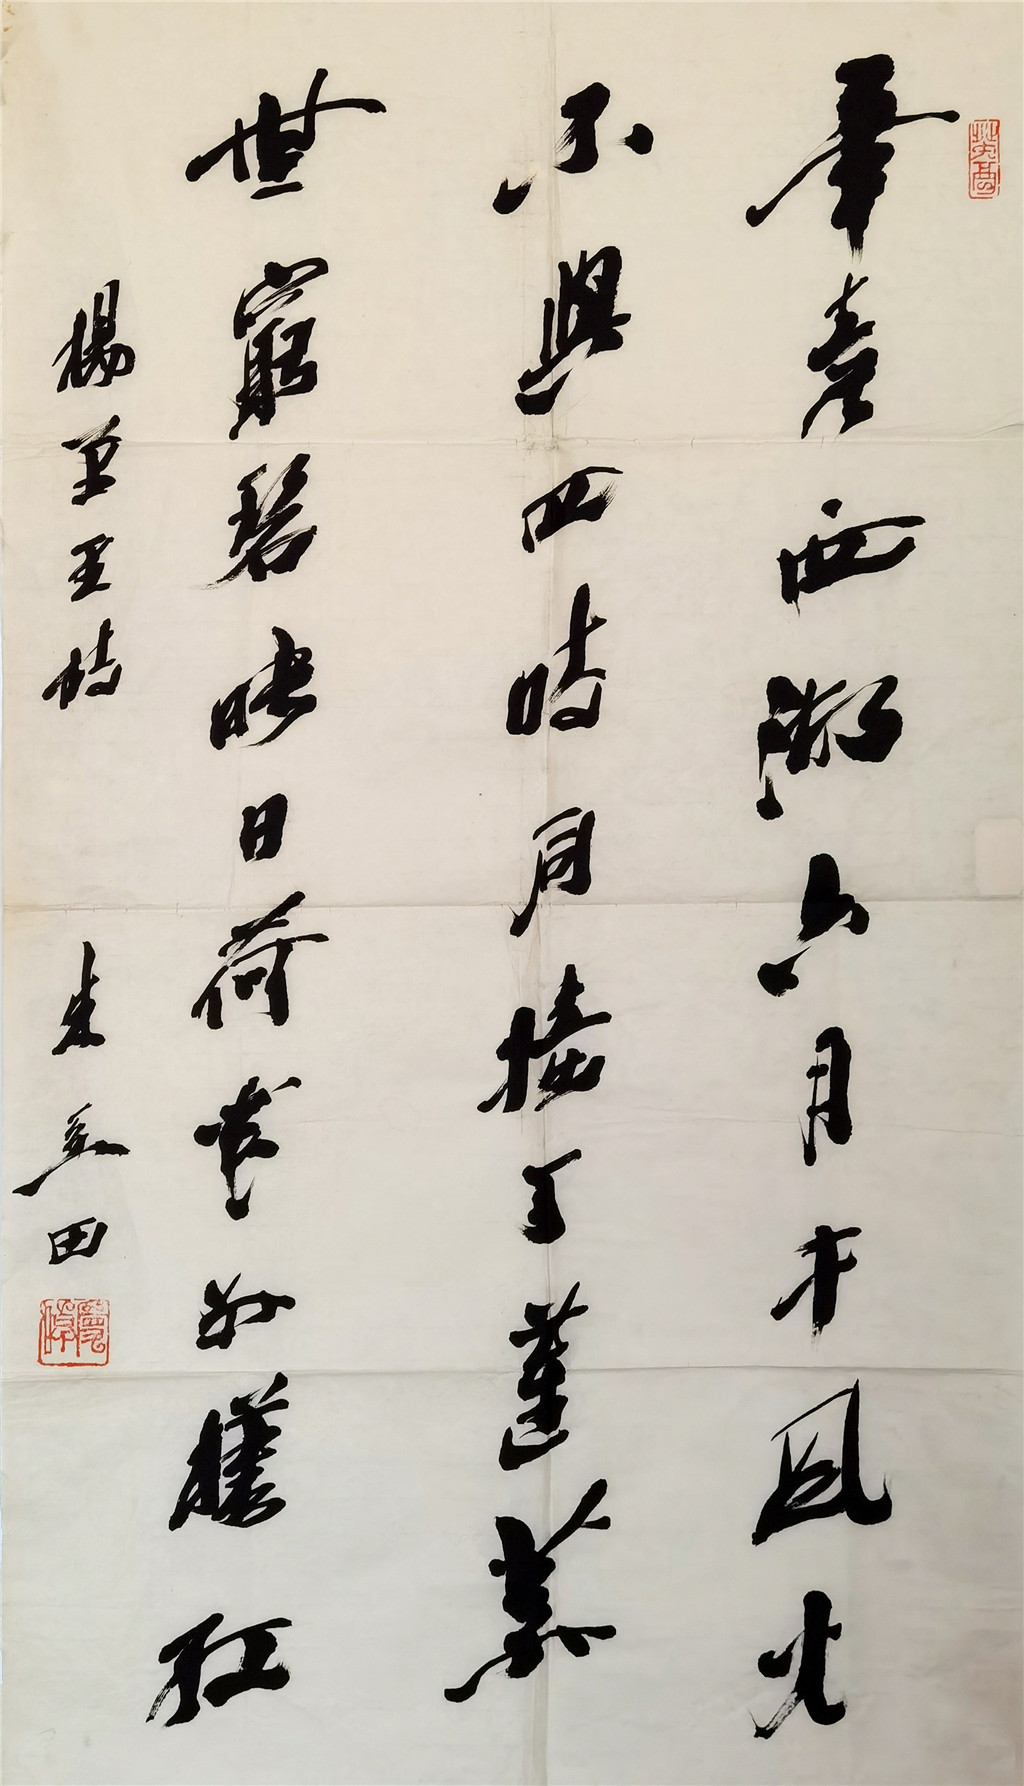 畢竟西湖六月中風光
不與四時同接天蓮葉
無窮碧映日荷花别樣紅
楊萬里詩 朱 田